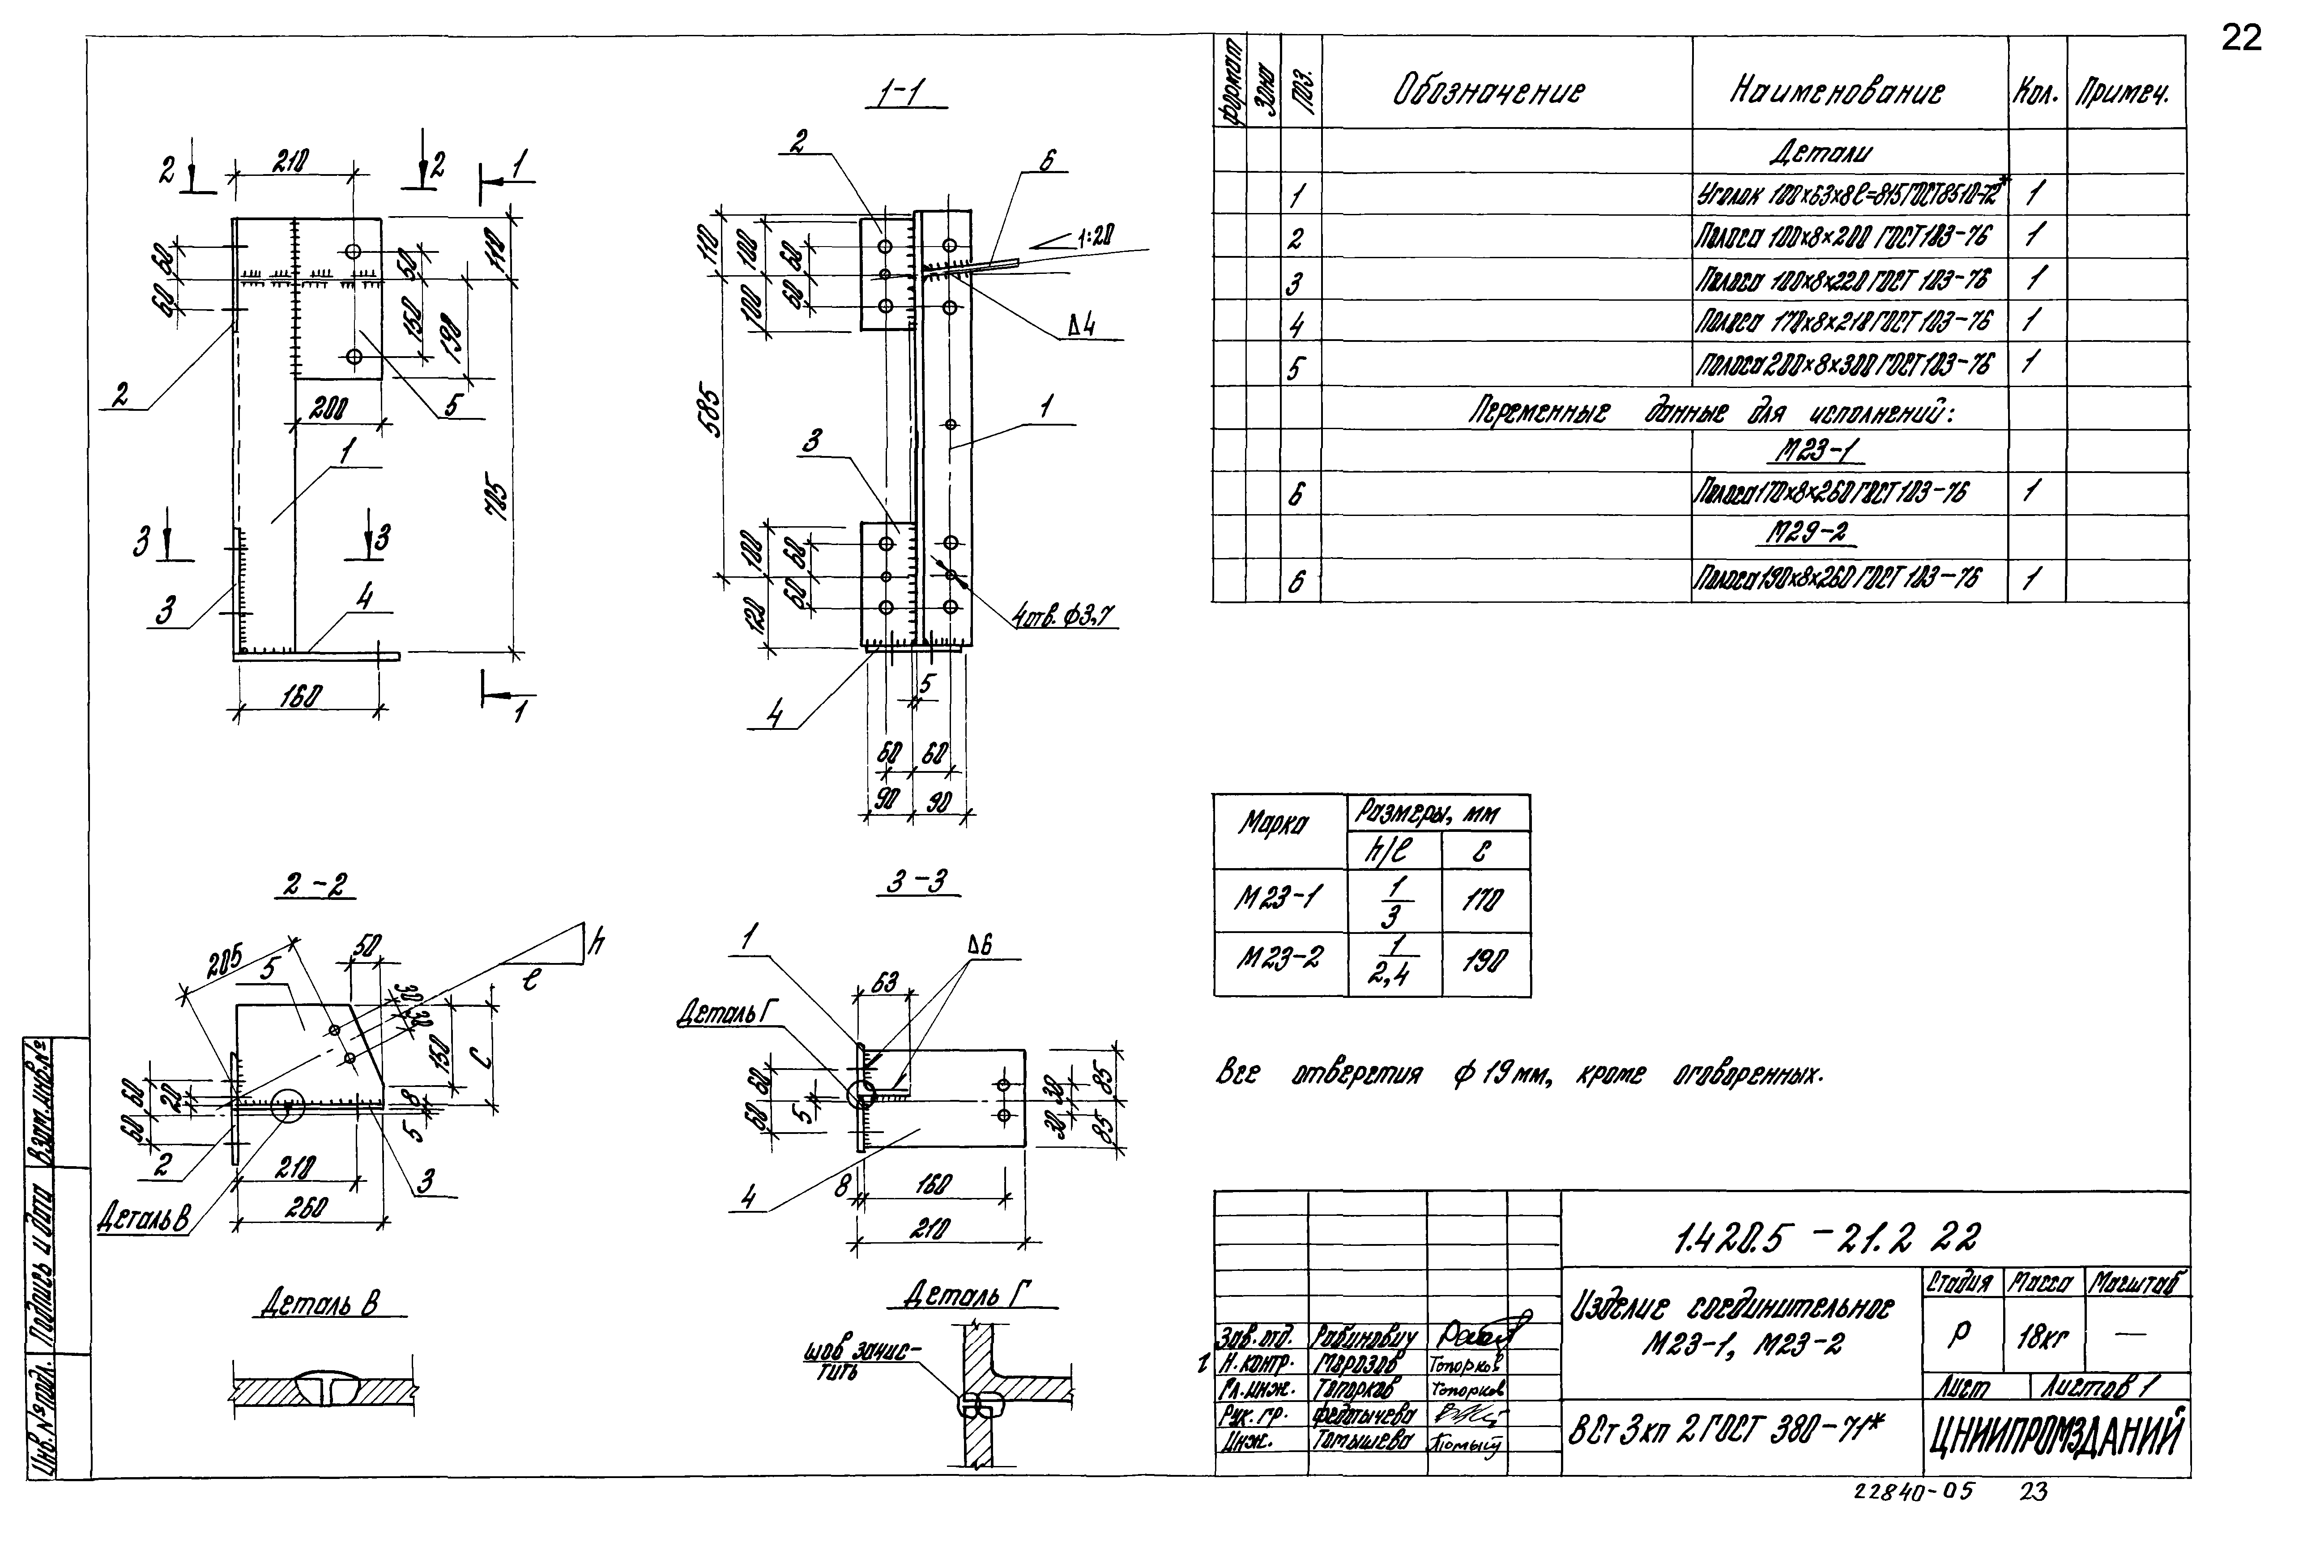 22
1-1
2 210 2 1
60 60 50 150 110 190
2 200 5
1
705
3 3
3 4
160 1
2 6
110 100 60 60 100
1:20
Δ4
585
1
3
100 60 60 120
4 отв. ф3,7
4 5
60 60
90 90
2-2
205 5 50 h
l
30 30
150 C
60 20 60
8 5
2 210 3
260
Деталь В
3-3
1 Δ6
63
Деталь Г
60 60 5
30 30 85 85
4 8 160
210
Деталь В
Деталь Г
шов зачис-
тить
формат Зона Поз. Обозначение Наименование Кол. Примеч.
Детали
1 Уголок 100×63×8 ℓ=815 ГОСТ 8510-72* 1
2 Полоса 100×8×200 ГОСТ 103-76 1
3 Полоса 100×8×220 ГОСТ 103-76 1
4 Полоса 170×8×218 ГОСТ 103-76 1
5 Полоса 200×8×300 ГОСТ 103-76 1
Переменные данные для исполнений:
М23-1
6 Полоса 170×8×260 ГОСТ 103-76 1
М29-2
6 Полоса 190×8×260 ГОСТ 103-76 1
Марка Размеры, мм
h/ℓ C
М23-1 1/3 170
М23-2 1/2,4 190
Все отверстия ф 19 мм, кроме оговоренных.
1.420.5 -21.2 22
Изделие соединительное
М23-1, М23-2
Стадия Масса Масштаб
Р 18кг —
Лист Листов 1
ВСт3кп 2 ГОСТ 380-71*
ЦНИИПРОМЗДАНИЙ
Зав. отд. Рабинович
Н. контр. Морозов Топорков
Гл. инж. Топорков Топорков
Рук. гр. Федотычева
Инж. Томышева
Взам. инв. №
Подпись и дата
Инв. № подл.
22840-05 23